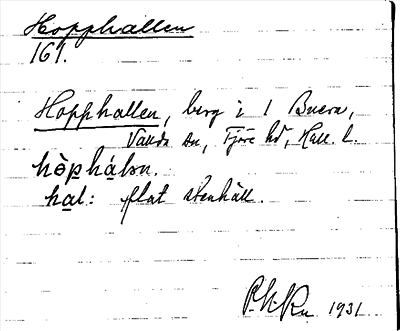 Hopphallen
161.
Hopphallen, berg i 1 Buera,
Vallda sn, Fjäre hd, Hall. l.
hòp hálən.
hal: flat stenhäll.
1931